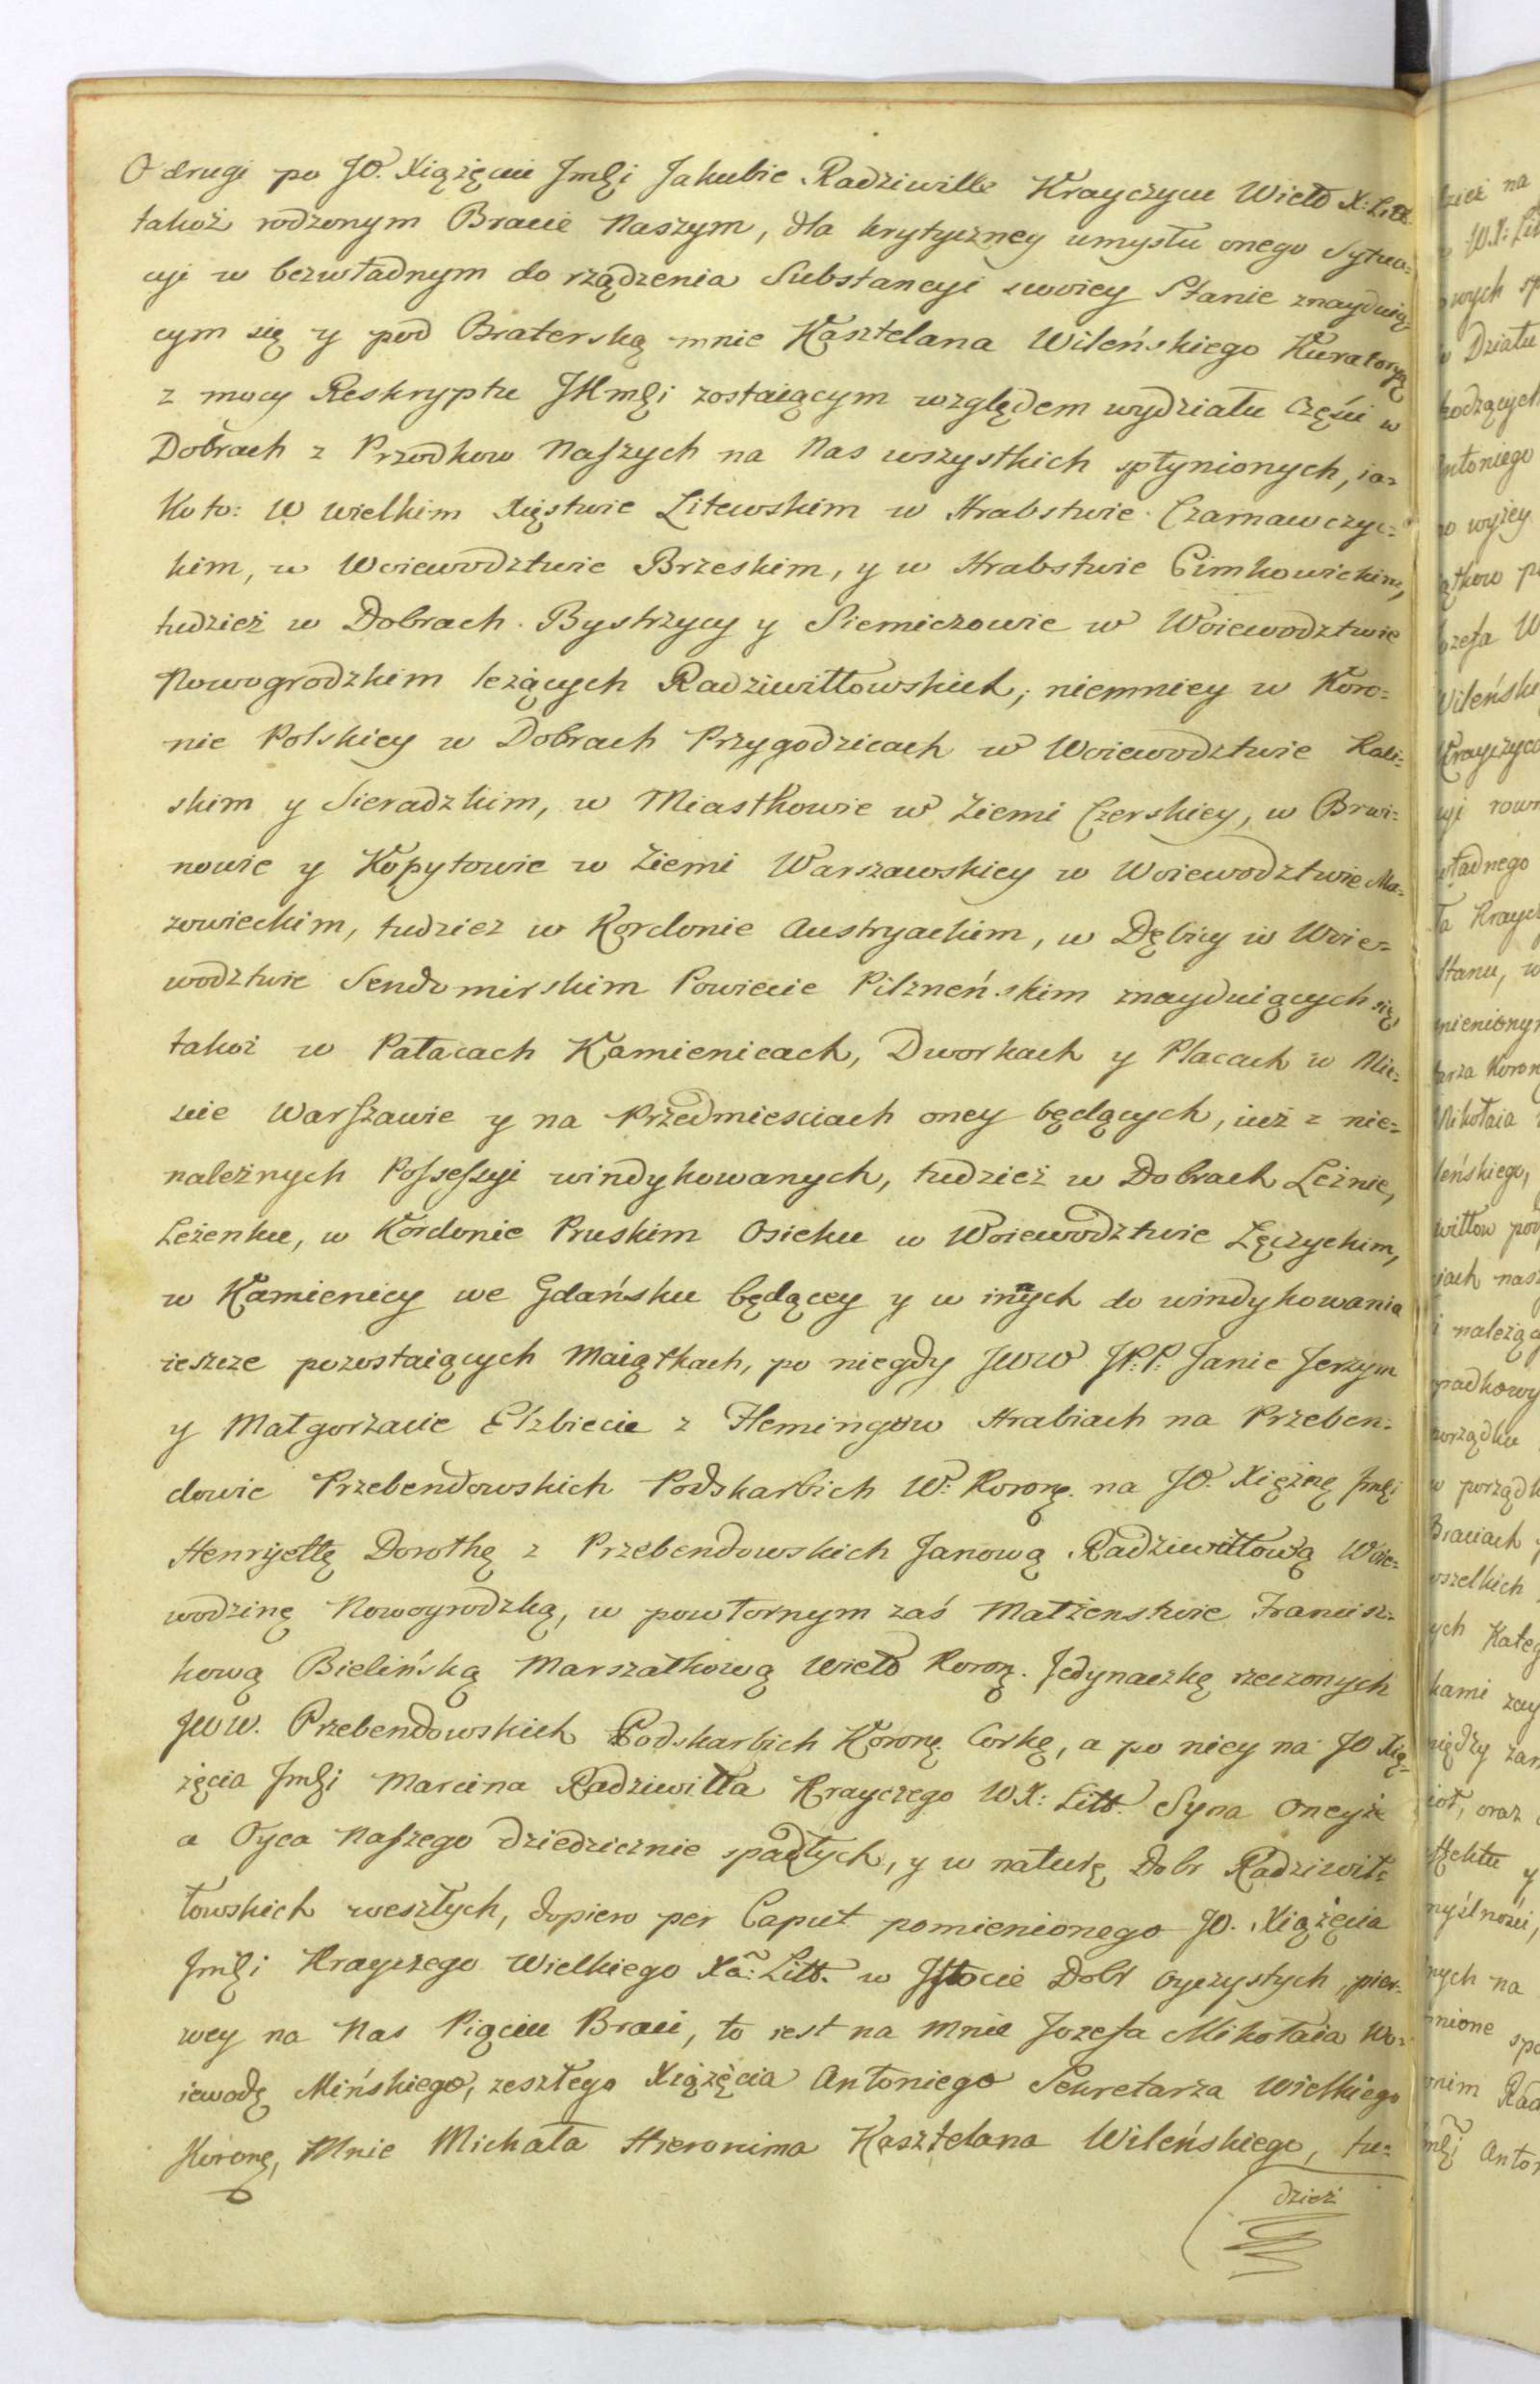 O drugi po JO. Xiążęciu Jmści Jakubie Radziwille Krayczym Wielo X: Litt.
takoż rodzonym Bracie Naszym, dla krytyczney umysłu onego Sytua=
cyi w bezwładnym do rządzenia Substancyi swoiey Stanie znayduią=
cym się y pod Braterską mnie Kasztelana Wileńskiego Kuratoryą
z mocy Reskryptu JKmści zostaiącym względem wydziału Części w
Dobrach z Przodkow Naszych na Nas wszystkich spłynionych, ia=
ko to: w wielkim Xięstwie Litewskim w Hrabstwie Czarnawczyc=
kim, w Woiewodztwie Brzeskim, y w Hrabstwie Cimkowickim,
tudzież w Dobrach Bystrzycy y Siemiezowie w Woiewodztwie
Nowogrodzkim leżących Radziwiłłowskich, niemniey w Koro=
nie Polskiey w Dobrach Przygodzicach w Woiewodztwie Kali=
skim y Sieradzkim, w Miastkowie w Ziemi Czerskiey, w Brwi=
nowie y Kopytowie w Ziemi Warszawskiey w Woiewodztwie Ma=
zowieckim, tudzież w Kordonie Austryackim, w Dębicy w Woie=
wodztwie Sendomirskim Powiecie Pilzneńskim znayduiących się,
takoż w Pałacach Kamienicach, Dworkach y Placach w Mie=
scie Warszawie y na Przedmiesciach oney będących, iuż z nie=
należnych Possessyi windykowanych, tudzież w Dobrach Leżnie,
Leżenku, w Kordonie Pruskim Osieku w Woiewodztwie Łęczyckim,
w Kamienicy we Gdańsku będącey y w innych do windykowania
ieszcze pozostaiących Maiątkach, po niegdy JWW JP.P. Janie Jerzym
y Małgorzacie Elzbiecie z Flemingow Hrabiach na Przeben=
dowie Przebendowskich Podskarbich W: Koronę. na JO. Xiężnę Jmści
Henryettę Dorothę z Przebendowskich Janową Radziwiłłową Woie=
wodzinę Nowogrodzką, w powtornym zaś Małżenstwie Francisz=
kową Bielińską Marszałkową Wielo Koronę. Jedynaczkę rzeczonych
JWW. Przebendowskich Podskarbich Koronę. Corkę, a po niey na JO Xią=
żęcia Jmści Marcina Radziwiłła Krayczego WX: Litt. Syna Oneyże
a Oyca Naszego dziedzicznie spadłych, y w naturę Dobr Radziwił=
łowskich weszłych, dopiero per Caput pomienionego JO. Xiążęcia
Jmści Krayczego Wielkiego Xa: Litt. w Istocie Dobr Oyczystych, pier=
wey na Nas Pięciu Braci, to iest na Mnie Jozefa Mikołaia Wo=
iewodę Mińskiego, zeszłego Xiążęcia Antoniego Sekretarza Wielkiego
Koronę, Mnie Michała Hieronima Kasztelana Wileńskiego, tu=
dzież